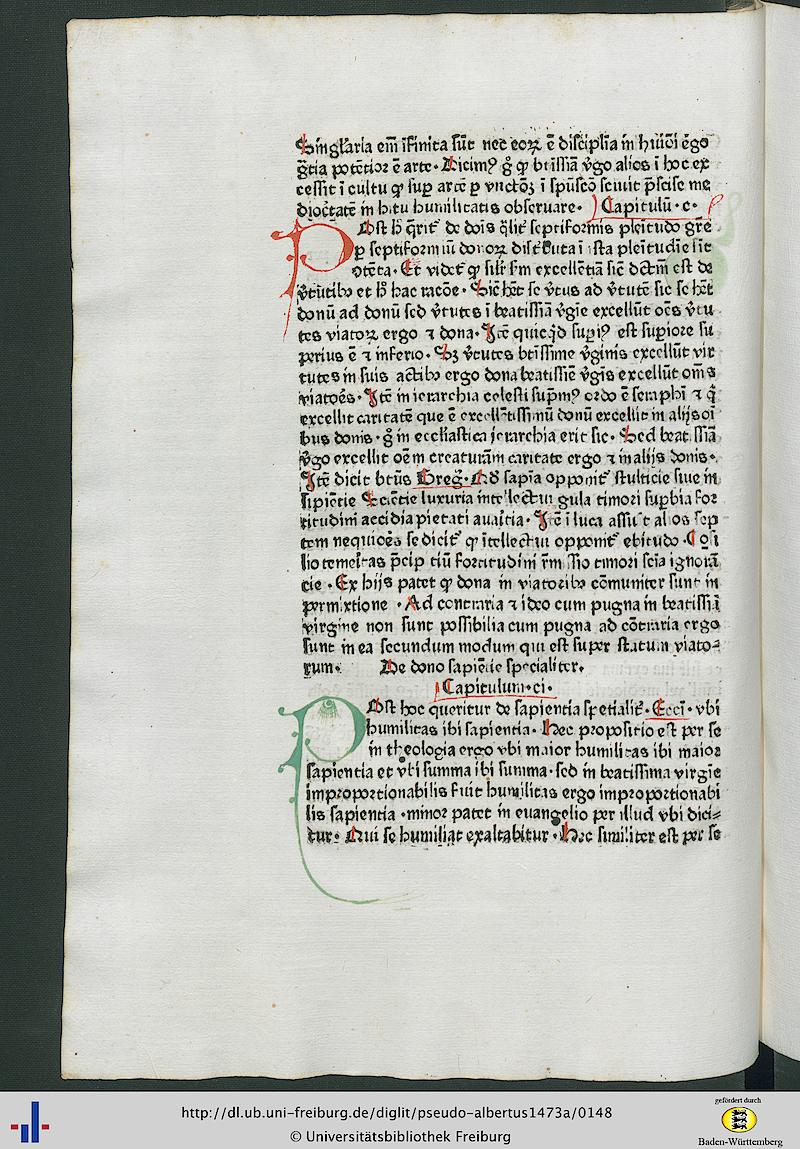 Singl'aria em̄ īfinita sūt nec eoꝝ ē disciplīa in huiōi ēgo
gr̄tia potētior ē arte. Dicimꝰ ḡ ꝙ btissīa v̄go alios ī hoc ex
cessit ī cultu
dioctatē in hitu humilitatis obseruare. Capitulū .c.
Ost h̄ q̄rit' de dōis q̄lit' septiformis pleītudo gr̄e
septiformiū donoꝝ distributa ī ista pleītudīe sit
otēta. Et videt' ꝙ sic̄ dc̄m est de
v̄tutibꝰ et h̄ hac racōe. Sic̄ hēt se v̄tus ad v̄tutē sic se hēt
donū ad donū sed v̄tutes ī beatissīa v̄gīe excellūt oēs v̄tu
tes viatoꝝ ergo ⁊ dona. Itē quicq̄d supiꝰ est supiore su
perius ē ⁊ inferio. Sꝫ v̄tutes btissime v̄ginis excellūt vir
tutes in suis actibꝰ ergo dona beatissīe v̄gīs excellūt om̄s
viatoēs. Itē in ierarchia celesti supmꝰ ordo ē seraphī ⁊ q̄
excellit caritatē que ē excellētissimū donū excellit in alijs oī
bus donis. ḡ in ecclīastica ierarchia erit sic. Sed beatissīa
v̄go excellit oēm creaturām caritate ergo ⁊ in alijs donis.
Itē dicit btūs Greg. Qd sapīa opponit' stulticie siue in
sipiētie Sciētie luxuria intellectui gula timori supbia for
titudini accidia pietati auaitia. Itē ī luca assūit alios sep
tem nequicēs se dicit' ꝙ ītellectui opponit' ebitudo. Cōsi
lio temeitas p̄cip tiū fortitudini timori scīa ignorā
cie. Ex hijs patet ꝙ dona in viatoribꝰ cōmuniter sunt in
permixtione. Ad contraria ⁊ ideo cum pugna in beatissīa
virgine non sunt possibilia cum pugna ad cōtraria ergo
sunt in ea secundum modum qui est super statum viato⸗
rum. De dono sapiētie specialiter.
Capitulum .ci.
POst hoc queritur de sapientia spetialit'. Eccī. vbi
humilitas ibi sapientia. Hec propositio est per se
in theologia ergo vbi maior humilitas ibi maior
sapientia et vbi summa ibi summa. sed in beatissima virgīe
improportionabilis fuit humilitas ergo improportionabi
lis sapientia. minor patet in euangelio per illud vbi dici⸗
tur. Qui se humiliat exaltabitur. Hec similiter est per se
http://dl.ub.uni-freiburg.de/diglit/pseudo-albertus1473a/0148
© Universitätsbibliothek Freiburg
gefördert durch
Baden-Württemberg